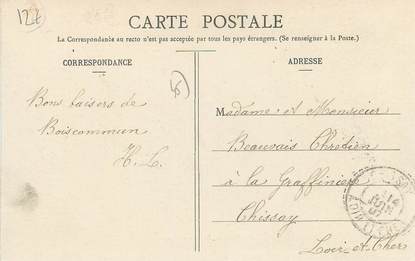 122
CARTE POSTALE
La Correspondance au recto n'est pas acceptée par tous les pays étrangers. (Se renseigner à la Poste.)
CORRESPONDANCE
ADRESSE
5
Bons baisers de
Boiscommun
H. L.
Madame et Monsieur
Beauvais Chrétien
à la Graffinière
Chissay
Loir-et-Cher